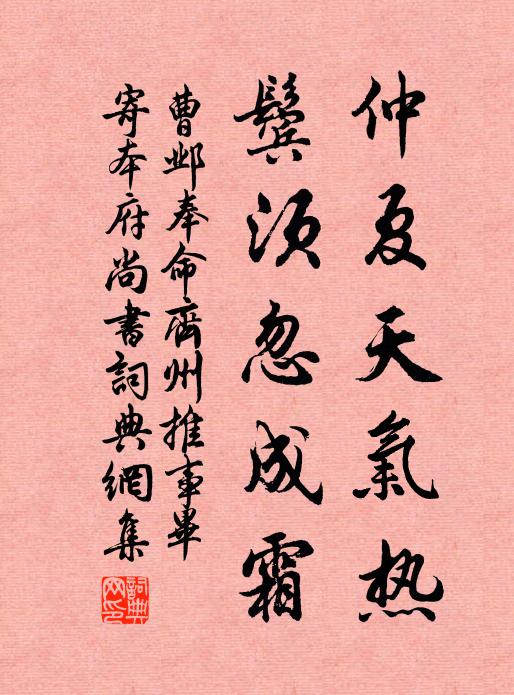 仲夏天氣热
鬢须忽成霜
曹邺奉命齊州推事畢
寄本府尚書詞典網集
詞典网印